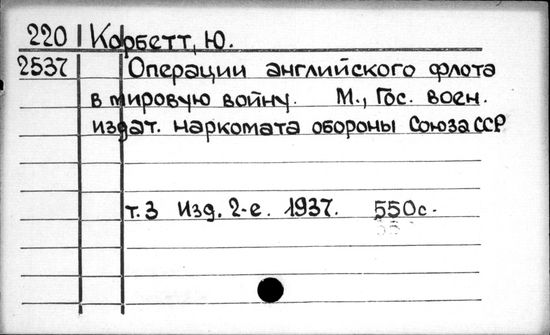 220 Корбетт, Ю.
2537 Операции английского флота
в мировую войну. М., Гос. воен.
издат. наркомата обороны Союза ССР
т. 3 Изд. 2-е. 1937. 550с.